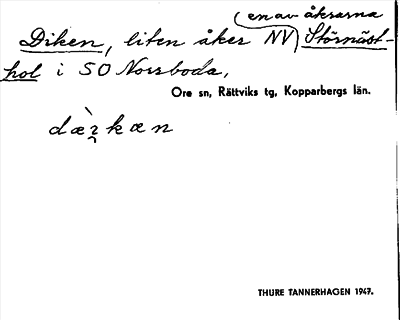 (en av åkrarna
Diken, liten åker NV) Störnäst-
hol i SO Norrboda,
Ore sn, Rättviks tg, Kopparbergs län.
THURE TANNERHAGEN 1947.